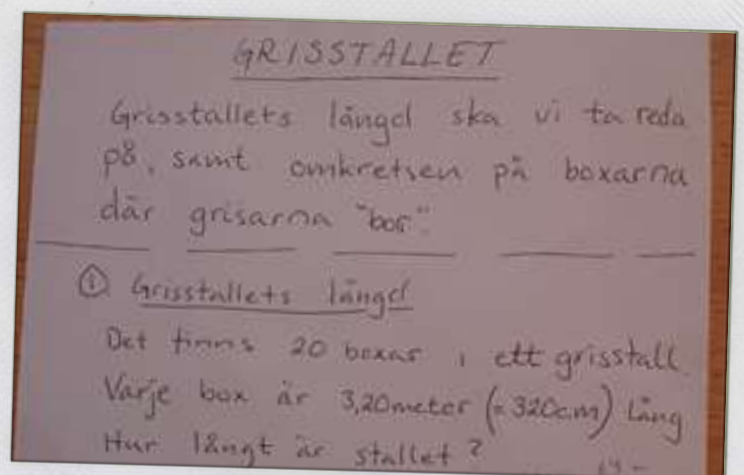 GRISSTALLET
Grisstallets längd ska vi ta reda
på, samt omkretsen på boxarna
där grisarna "bor".
① Grisstallets längd
Det finns 20 boxar i ett grisstall.
Varje box är 3,20meter (=320cm) lång
Hur långt är stallet?